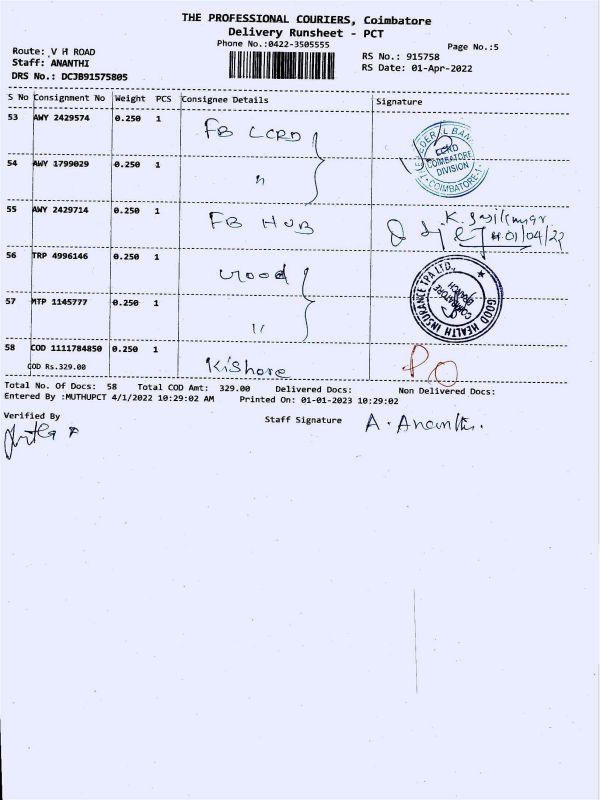 THE PROFESSIONAL COURIERS, Coimbatore
Delivery Runsheet - PCT
Phone No.:0422-3505555
Page No.:5
Route: V H ROAD
Staff: ANANTHI
DRS No.: DCJB91575805
RS No.: 915758
RS Date: 01-Apr-2022
S No Consignment No Weight PCS Consignee Details Signature
53 AWY 2429574 0.250 1 FB LCRD
FEDERAL BANK
LCRD
COIMBATORE
DIVISION
COIMBATORE-1
54 AWY 1799029 0.250 1 "
55 AWY 2429714 0.250 1 FB HUB
01/04/22
56 TRP 4996146 0.250 1 Good
GOOD HEALTH INSURANCE TPA LTD.
COIMBATORE
BRANCH
57 MTP 1145777 0.250 1 "
58 COD 1111784850 0.250 1 Kishore
COD Rs.329.00
Total No. Of Docs: 58 Total COD Amt: 329.00 Delivered Docs: Non Delivered Docs:
Entered By :MUTHUPCT 4/1/2022 10:29:02 AM Printed On: 01-01-2023 10:29:02
Verified By
Staff Signature A. Ananthi.